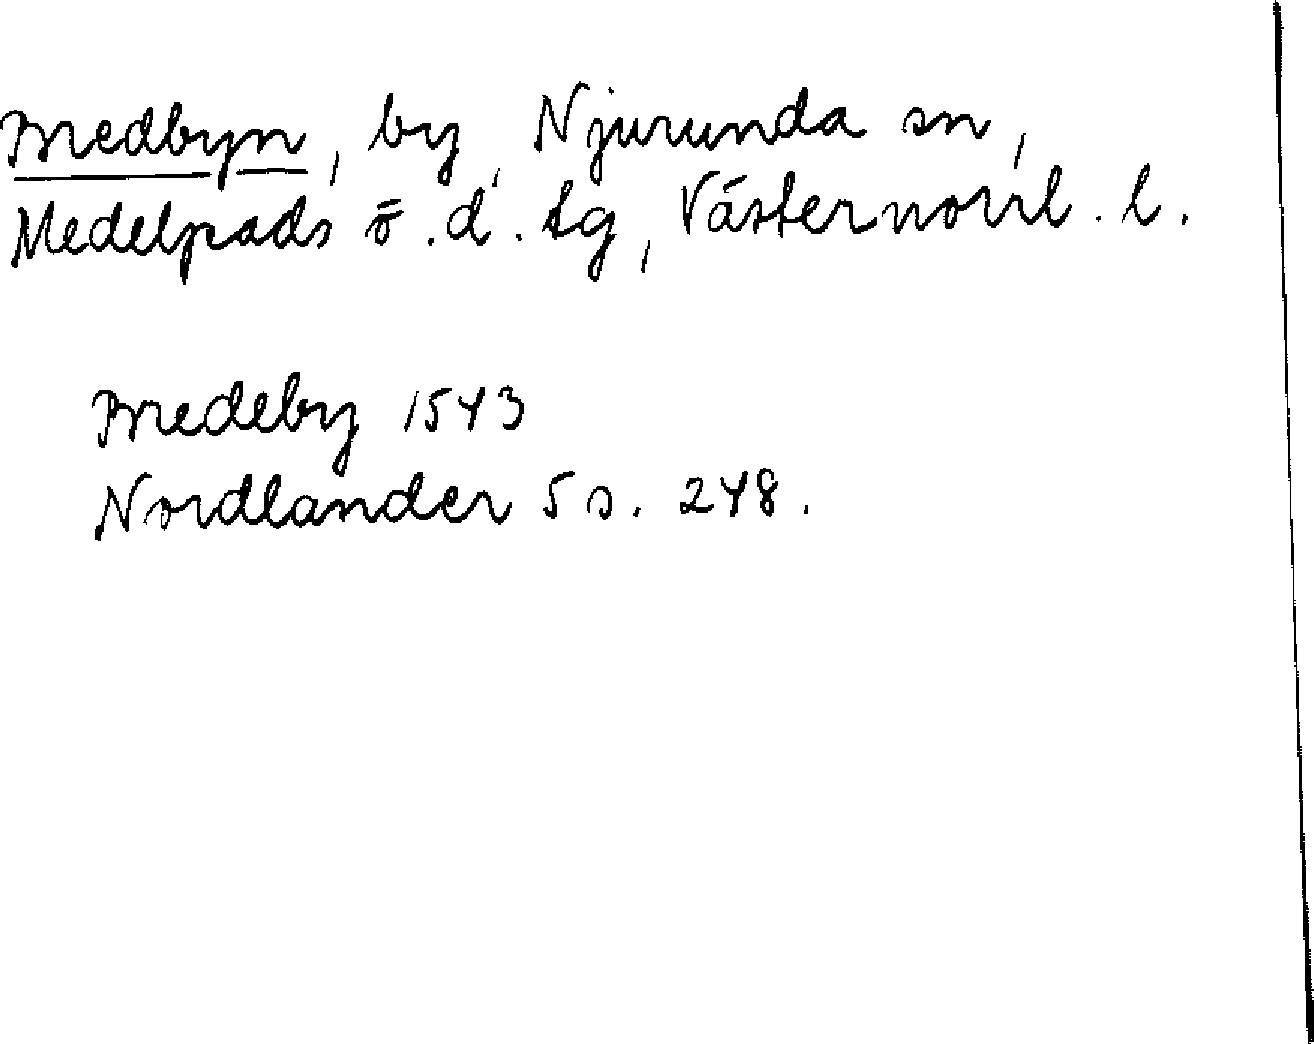 Bredbyn, by, Njurunda sn,
Medelpads ö.d. tg, Västernorrl. l.
Bredeby 1543
Nordlander 5 s. 248.